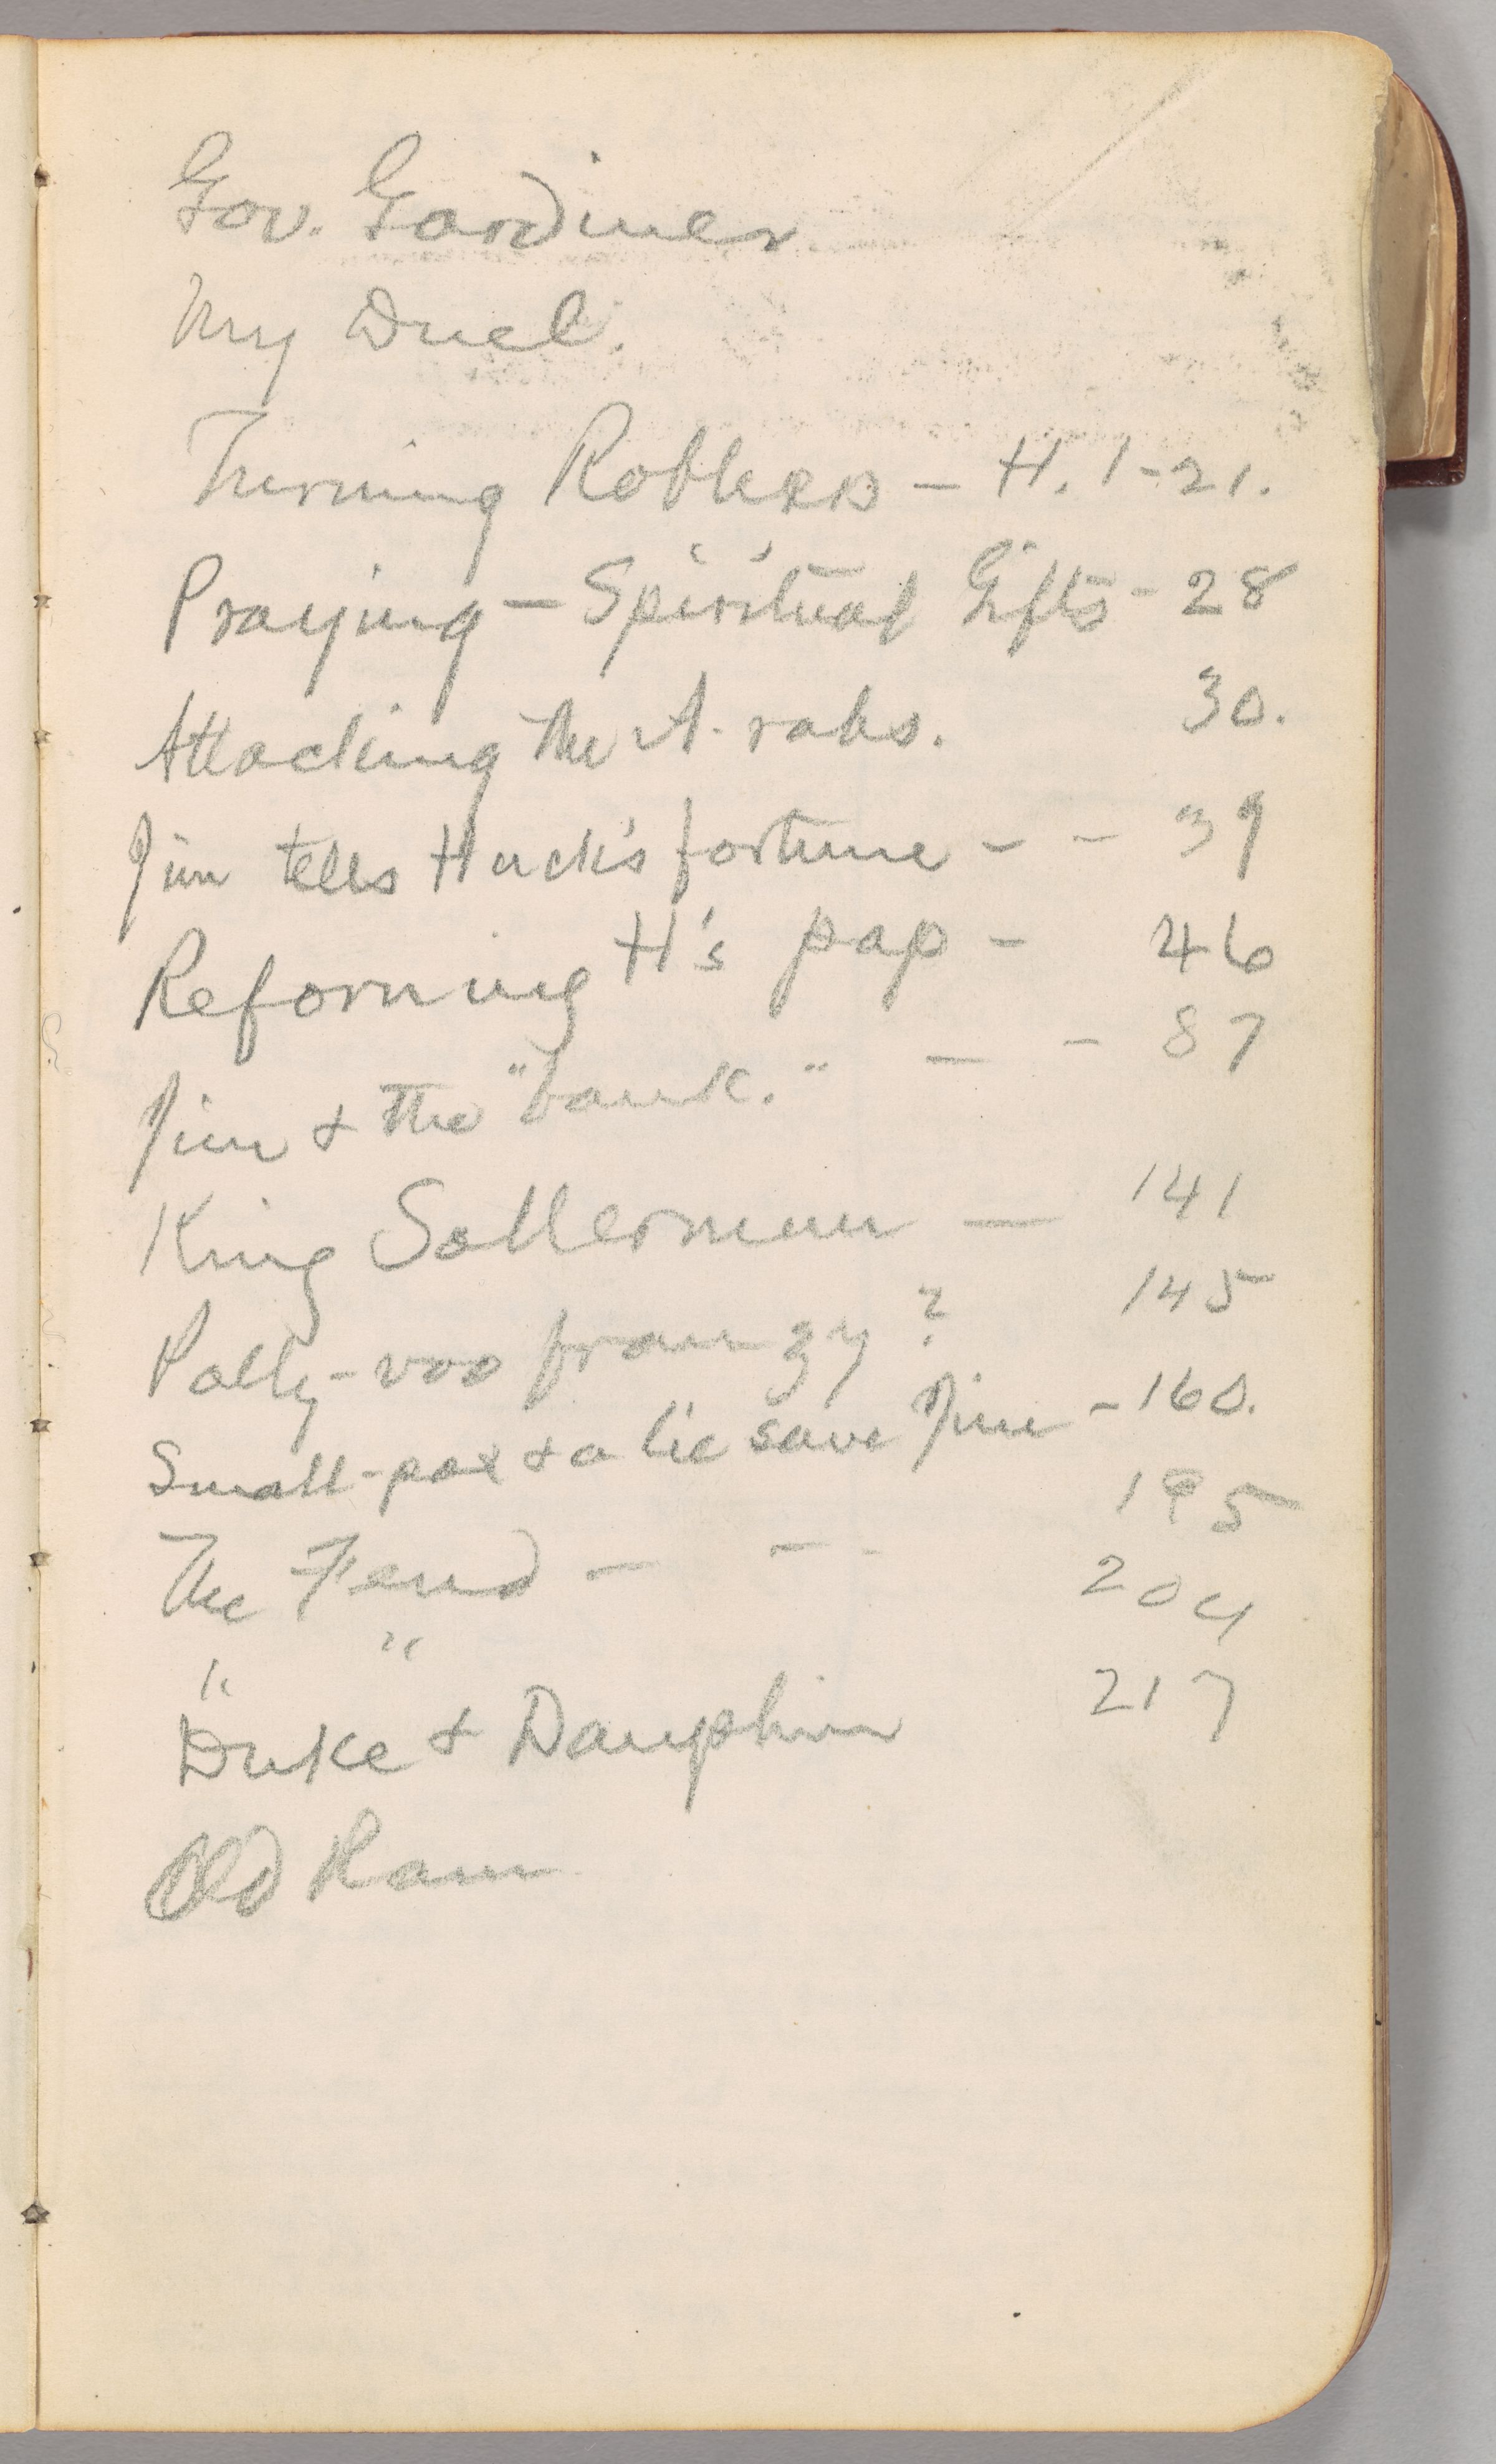 Gov. Gardiner
My Duel.
Turning Robbers — H. 1-21.
Praying — Spiritual Gifts - 28
Attacking the A-rabs. 30.
Jim tells Huck's fortune - - 39
Reforming H's pap - 46
Jim & the "bank." — - 87
King Sollermun — 141
Polly-voo franzy? 145
Small-pox & a lie save Jim - 160.
The Feud — - - 195
" " 204
Duke & Dauphin 217
Old Ram